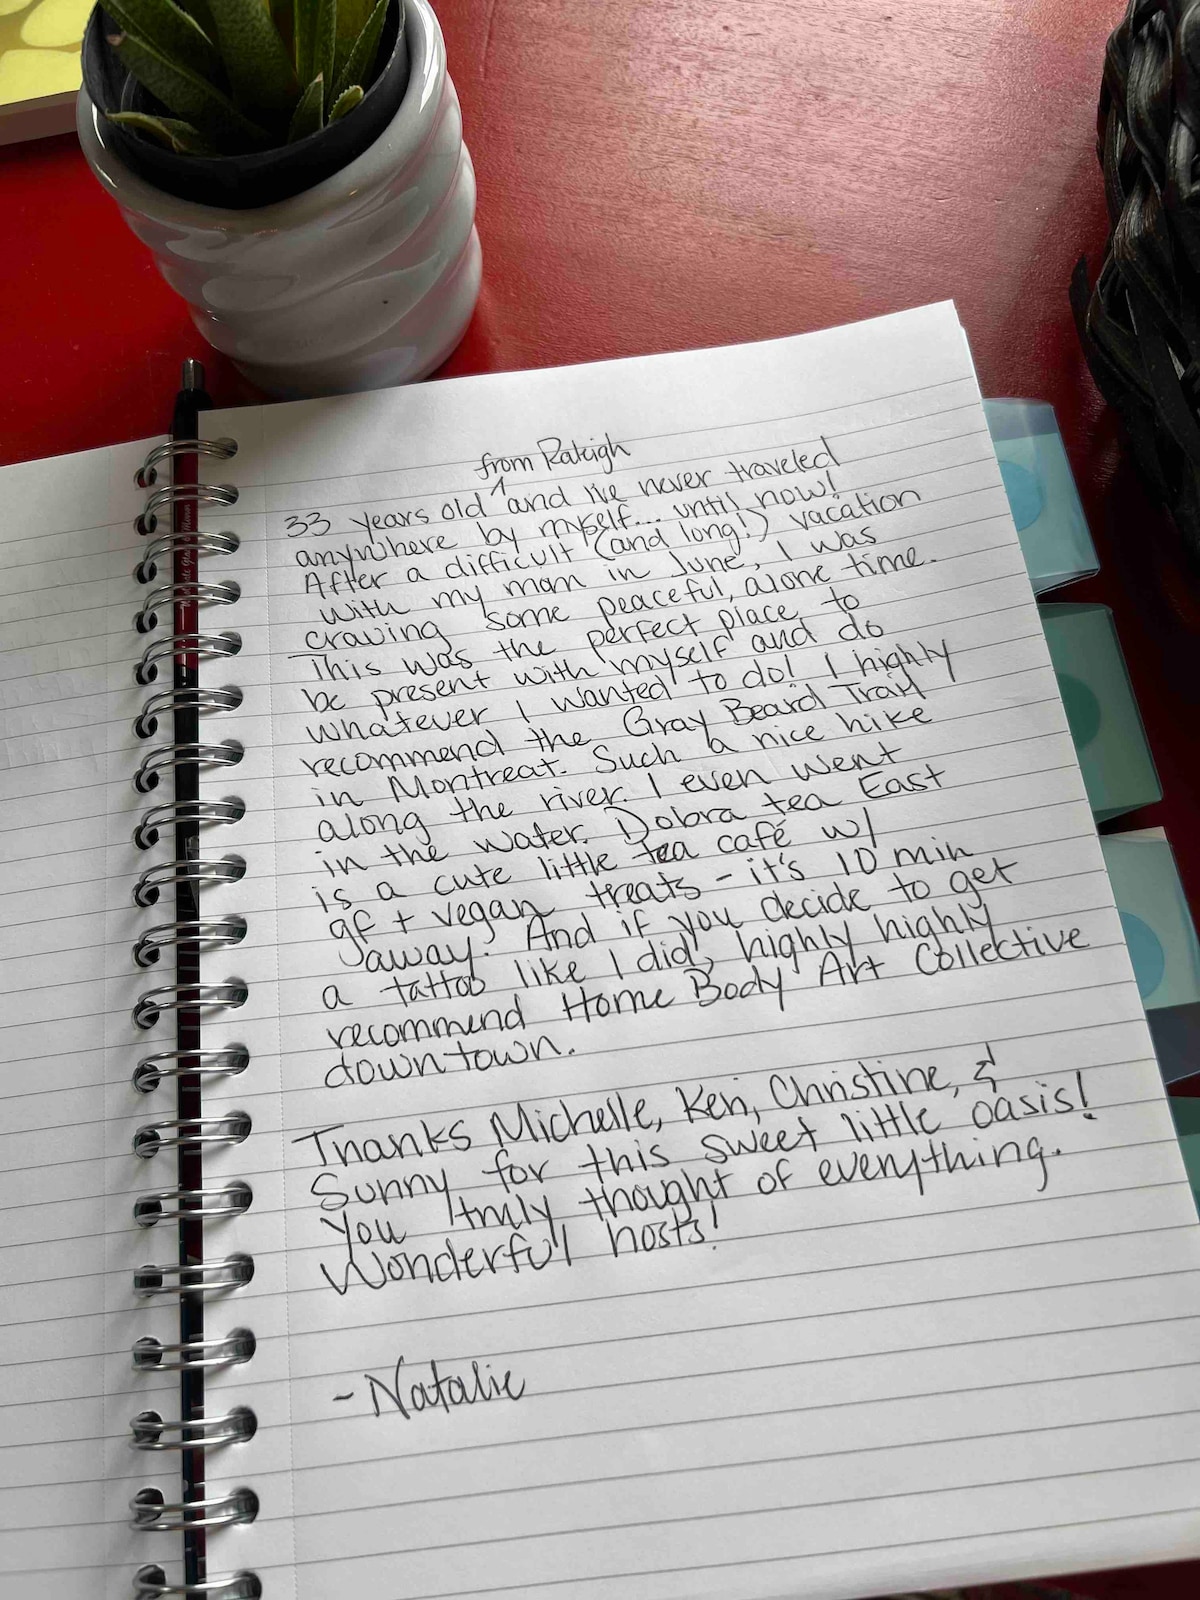 from Raleigh
33 years old ^ and I've never traveled
anywhere by myself... until now!
After a difficult (and long!) vacation
with my mom in June, I was
craving some peaceful, alone time.
This was the perfect place to
be present with myself and do
whatever I wanted to do! I highly
recommend the Gray Beard Trail
in Montreat. Such a nice hike
along the river. I even went
in the water. Dobra tea East
is a cute little tea café w/
gf + vegan treats - it's 10 min
away. And if you decide to get
a tattoo like I did, highly highly
recommend Home Body Art Collective
downtown.
Thanks Michelle, Ken, Christine, &
Sunny for this sweet little oasis!
You truly thought of everything.
Wonderful hosts!
- Natalie